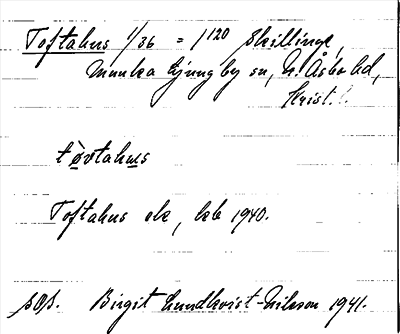 Toftahus 1/36 = 1 120 Skillinge,
Munka Ljungby sn, N. Åsbo hd,
Krist. l.
tòvtahus
Toftahus ek, kb 1940.
Birgit Lundkvist-Nilsson 1941.